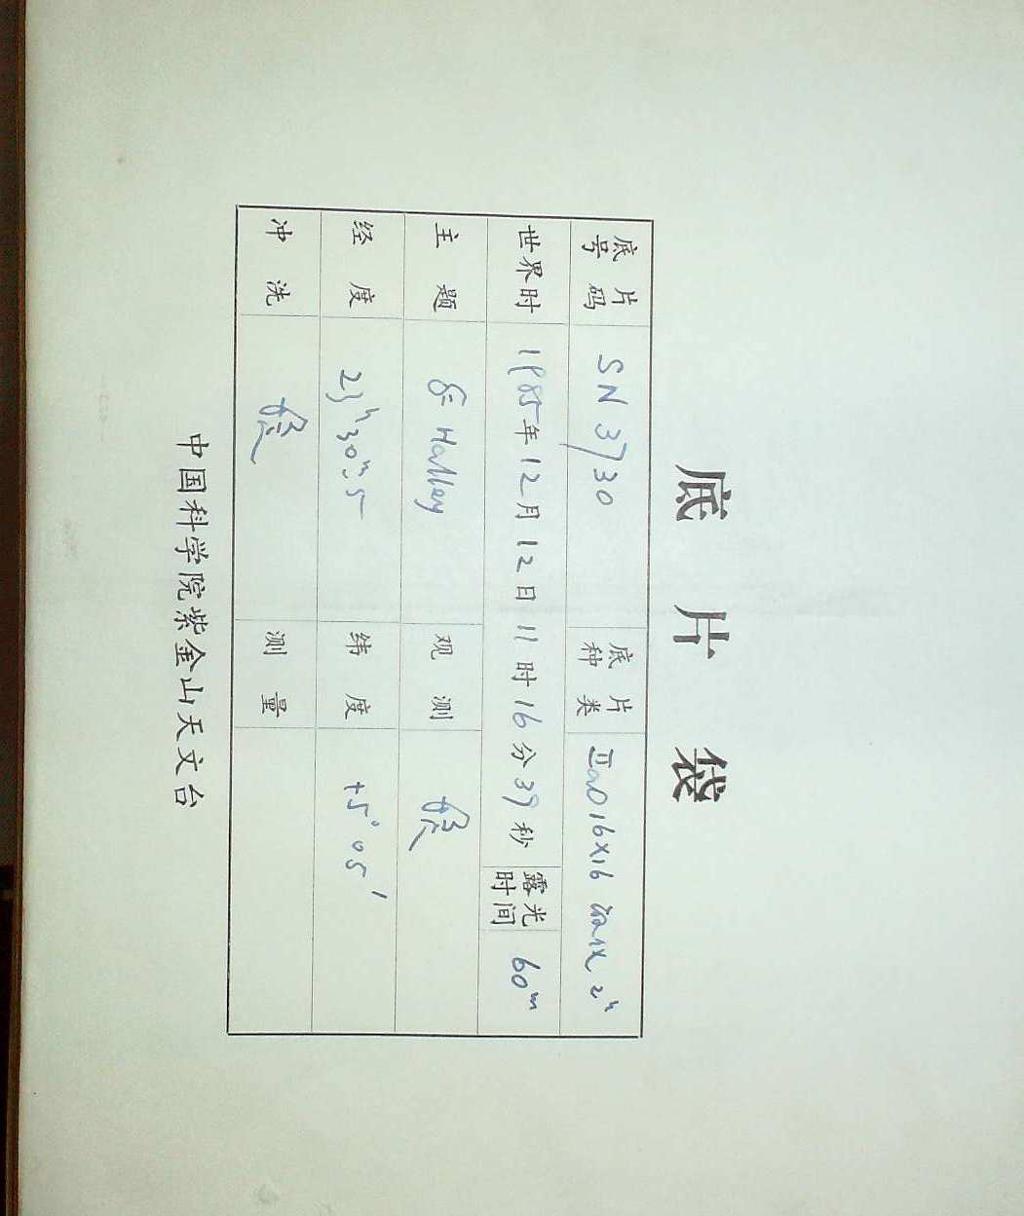 底片袋
底片号码 SN 3730 底片种类 IIaO 16×16
世界时 1985年12月12日11时16分39秒 露光时间 60m
主题 Halley 观测
经度 23h30m.5 纬度 +5°05′
冲洗 测量
中国科学院紫金山天文台